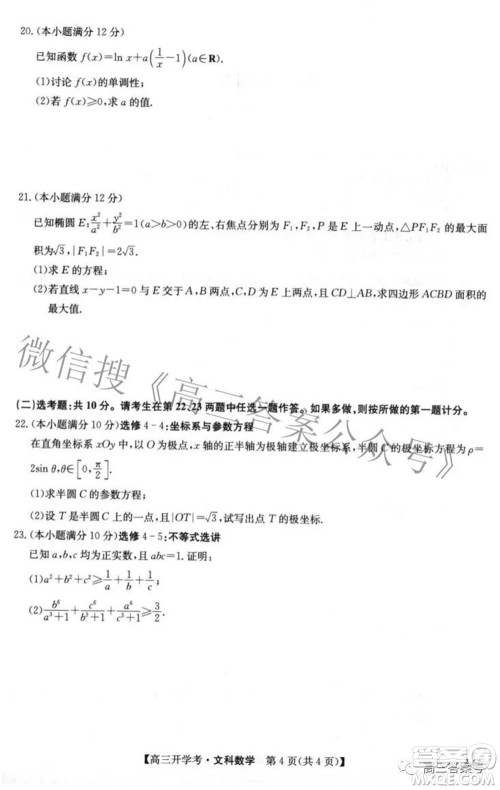 20.(本小题满分12分)
已知函数 f(x)=ln x+a(1/x−1)(a∈R).
(1)讨论 f(x)的单调性;
(2)若 f(x)≥0,求 a 的值.
21.(本小题满分12分)
已知椭圆 E:x²/a²+y²/b²=1(a>b>0)的左、右焦点分别为 F₁,F₂,P 是 E 上一动点,△PF₁F₂ 的最大
面积为√3,|F₁F₂|=2√3.
(1)求 E 的方程;
(2)若直线 x−y−1=0 与 E 交于 A,B 两点,C,D 为椭圆 E 上两点,且 CD⊥AB,求四边形 ACBD 面积的
最大值.
微信搜《高三答案公众号》
(二)选考题:共10分。请考生在第22、23两题中任选一题作答。如果多做,则按所做的第一题计分。
22.(本小题满分10分)选修4-4:坐标系与参数方程
在直角坐标系 xOy 中,以 O 为极点,x 轴的正半轴为极轴建立极坐标系,半圆 C 的极坐标方程为 ρ=
2sin θ,θ∈[0,π/2].
(1)求半圆 C 的参数方程;
(2)设 T 是半圆 C 上的一点,且|OT|=√3,试写出点 T 的极坐标.
23.(本小题满分10分)选修4-5:不等式选讲
已知 a,b,c 均为正实数,且 abc=1.证明:
(1)a²+b²+c²≥1/a+1/b+1/c;
(2)b⁶/(a³+1)+c⁶/(b³+1)+a⁶/(c³+1)≥3/2.
【高三开学考·文科数学 第4页(共4页)】
高三答案号